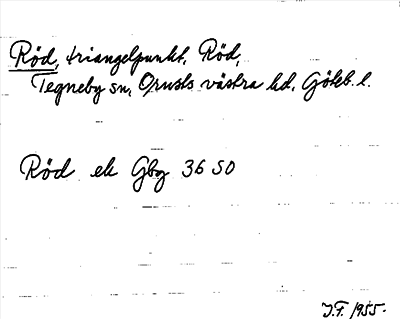 Röd, triangelpunkt, Röd,
Tegneby sn, Orusts västra hd, Göteb. l.
Röd ek Gbg 36 SO
J.F. 1955.